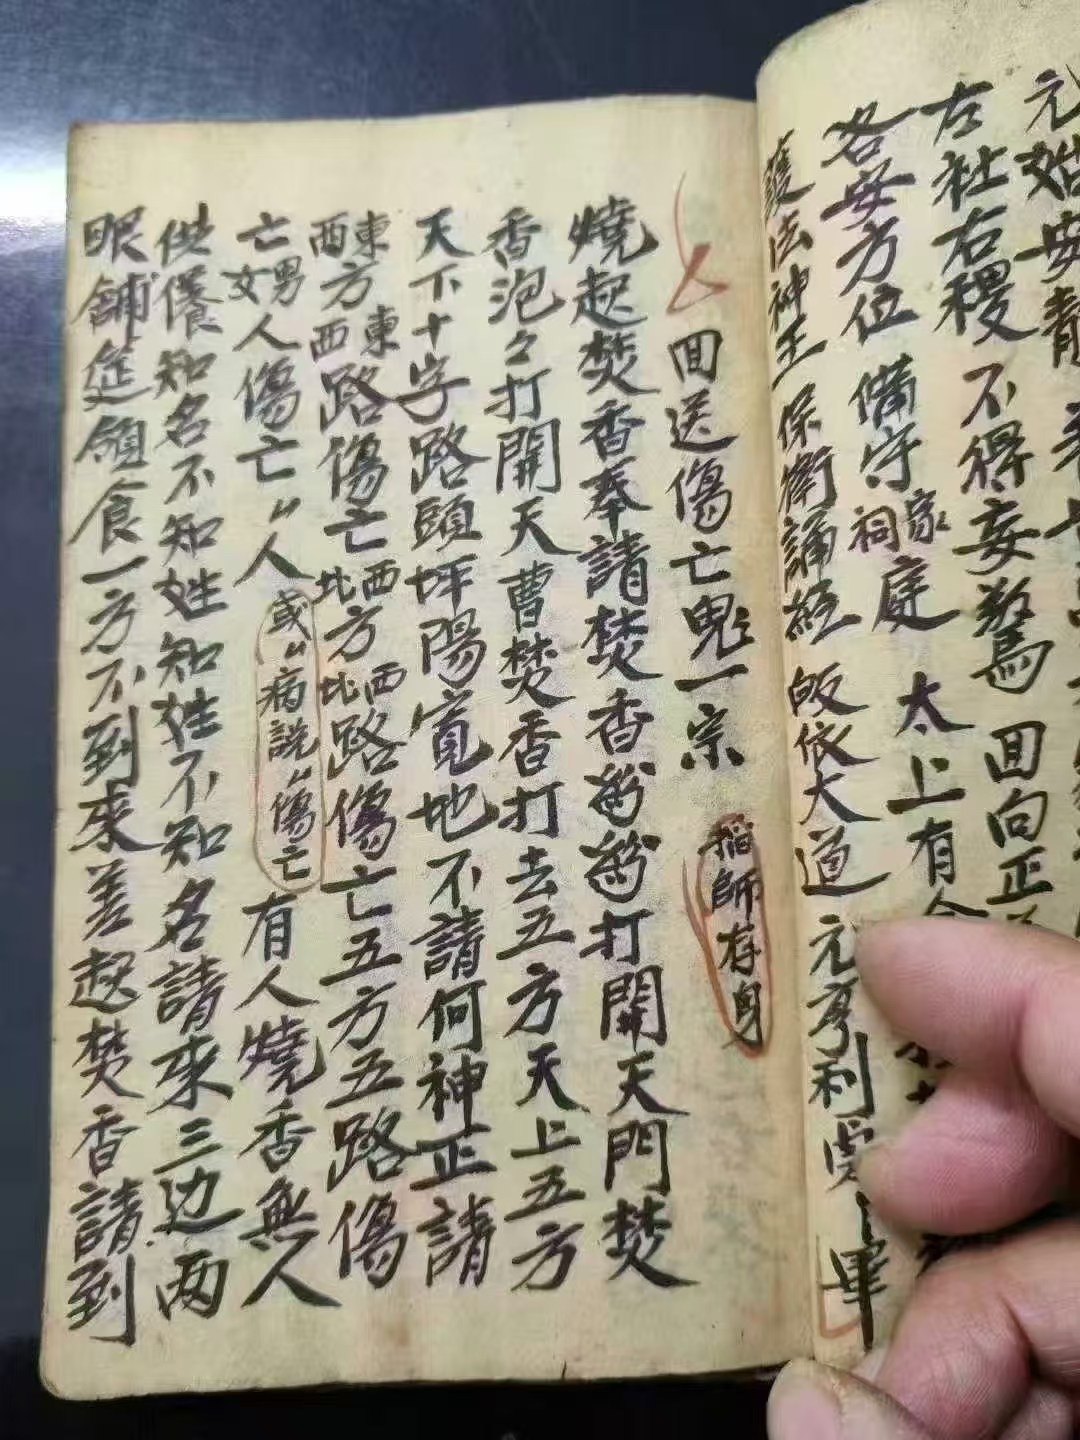 元始安
左社右稷 不得妄驚 回向正
各安方位 備守家祠庭 太上有
護法神王 保衛誦經 皈依大道 元亨利 畢
回送傷亡鬼一宗 師存身
燒起焚香奉請焚香 打開天門焚
香泡々打開天曹焚香打去五方天上五方
天下十字路頭坪陽寬地不請何神正請
東西方東西路傷亡西北方西北路傷亡五方五路傷
亡男女人傷亡〃人或〃病說〃傷亡有人燒香無人
供養知名不知姓知姓不知名請來三边两
眼舖筵領食一方不到來差起焚香請到